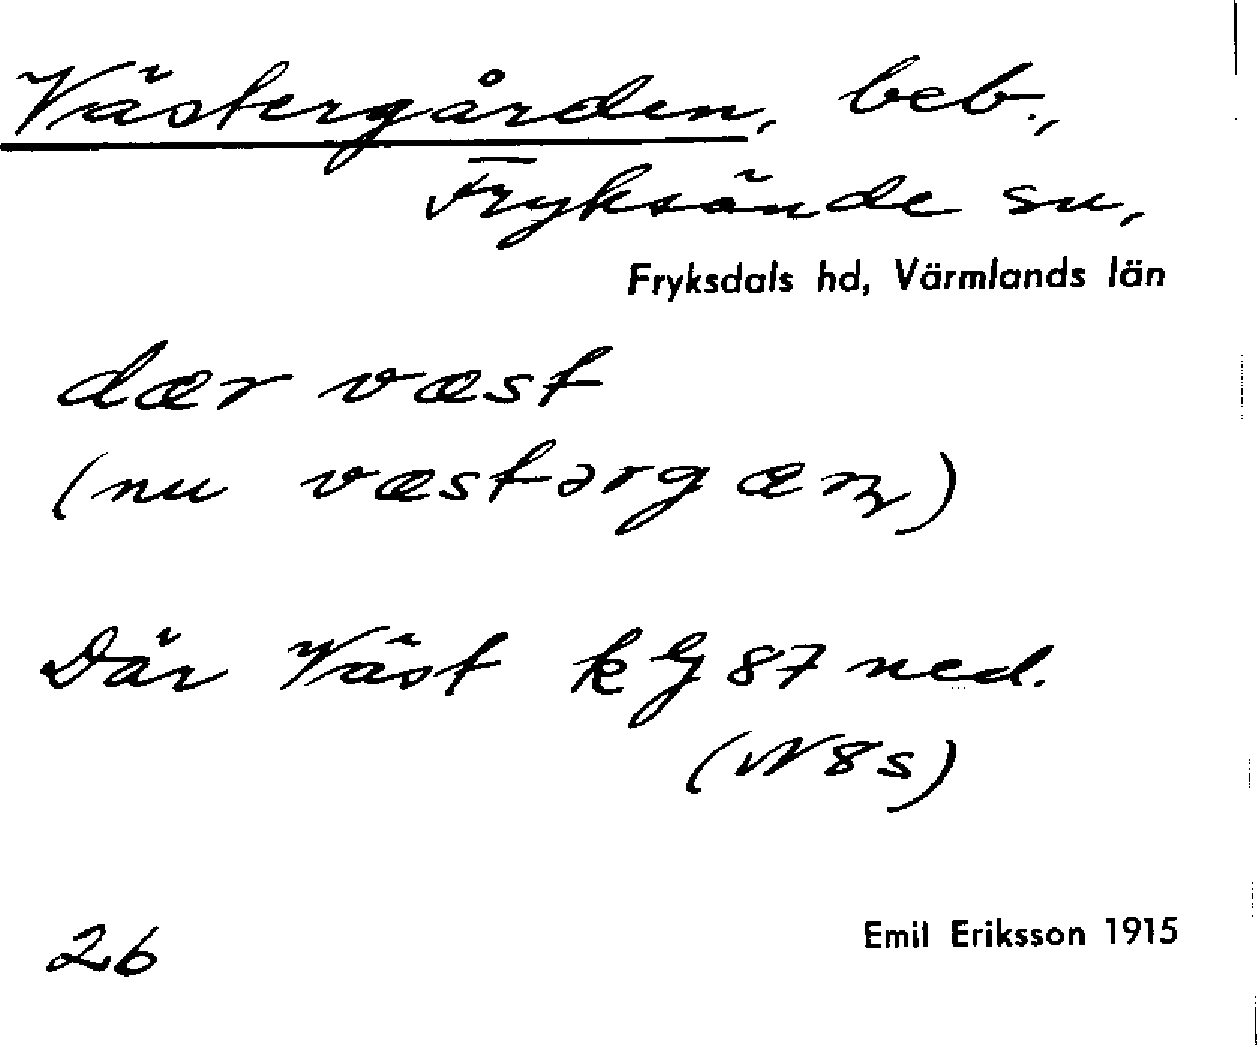 Västergården, beb.,
Fryksände sn,
Fryksdals hd, Värmlands län
dær væst
(nu væstərgæɳ)
Där Väst k G 87 ned.
(N 8 s)
26
Emil Eriksson 1915